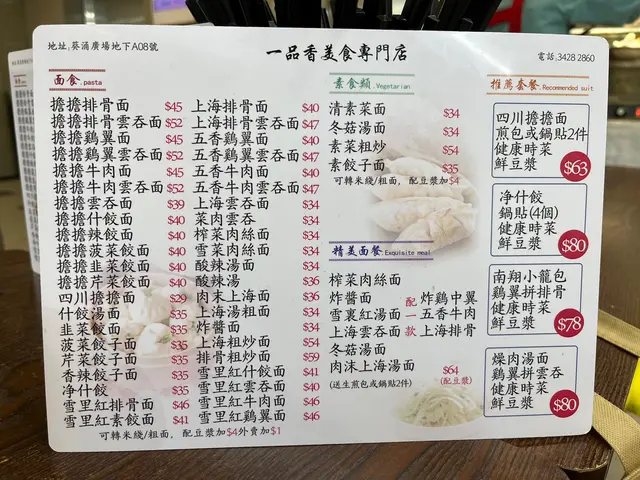 地址.葵涌廣場地下A08號
一品香美食專門店
電話.3428 2860
面食.pasta
擔擔排骨面 $45
擔擔排骨雲吞面 $52
擔擔鷄翼面 $45
擔擔鷄翼雲吞面 $52
擔擔牛肉面 $45
擔擔牛肉雲吞面 $52
擔擔雲吞面 $39
擔擔什餃面 $40
擔擔辣餃面 $40
擔擔菠菜餃面 $40
擔擔韭菜餃面 $40
擔擔芹菜餃面 $40
四川擔擔面 $29
什餃湯面 $35
韭菜餃面 $35
菠菜餃子面 $35
芹菜餃子面 $35
香辣餃子面 $35
净什餃 $35
雪里紅排骨面 $46
雪里紅素餃面 $41
上海排骨面 $40
上海排骨雲吞面 $47
五香鷄翼面 $40
五香鷄翼雲吞面 $47
五香牛肉面 $40
五香牛肉雲吞面 $47
上海雲吞面 $34
菜肉雲吞 $34
榨菜肉絲面 $34
雪菜肉絲面 $34
酸辣湯 $34
酸辣湯面 $36
肉末上海面 $36
上海湯粗面 $34
炸醬面 $34
上海粗炒面 $54
排骨粗炒面 $59
雪里紅什餃面 $41
雪里紅雲吞面 $40
雪里紅牛肉面 $46
雪里紅鷄翼面 $46
可轉米綫/粗面，配豆漿加$4外賣加$1
素食類.Vegetarian
清素菜面 $34
冬菇湯面 $34
素菜粗炒 $54
素餃子面 $35
可轉米綫/粗面，配豆漿加$4
精美面餐.Exquisite meal
榨菜肉絲面
炸醬面
雪裏紅湯面
上海雲吞面
冬菇湯面
肉沫上海湯面
(送生煎包或鍋貼2件)
配一款
炸鷄中翼
五香牛肉
上海排骨
$64
(配豆漿)
推薦套餐.Recommended suit
四川擔擔面
煎包或鍋貼2件
健康時菜
鮮豆漿
$63
净什餃
鍋貼(4個)
健康時菜
鮮豆漿
$80
南翔小籠包
鷄翼拼排骨
健康時菜
鮮豆漿
$78
燥肉湯面
鷄翼拼雲吞
健康時菜
鮮豆漿
$80